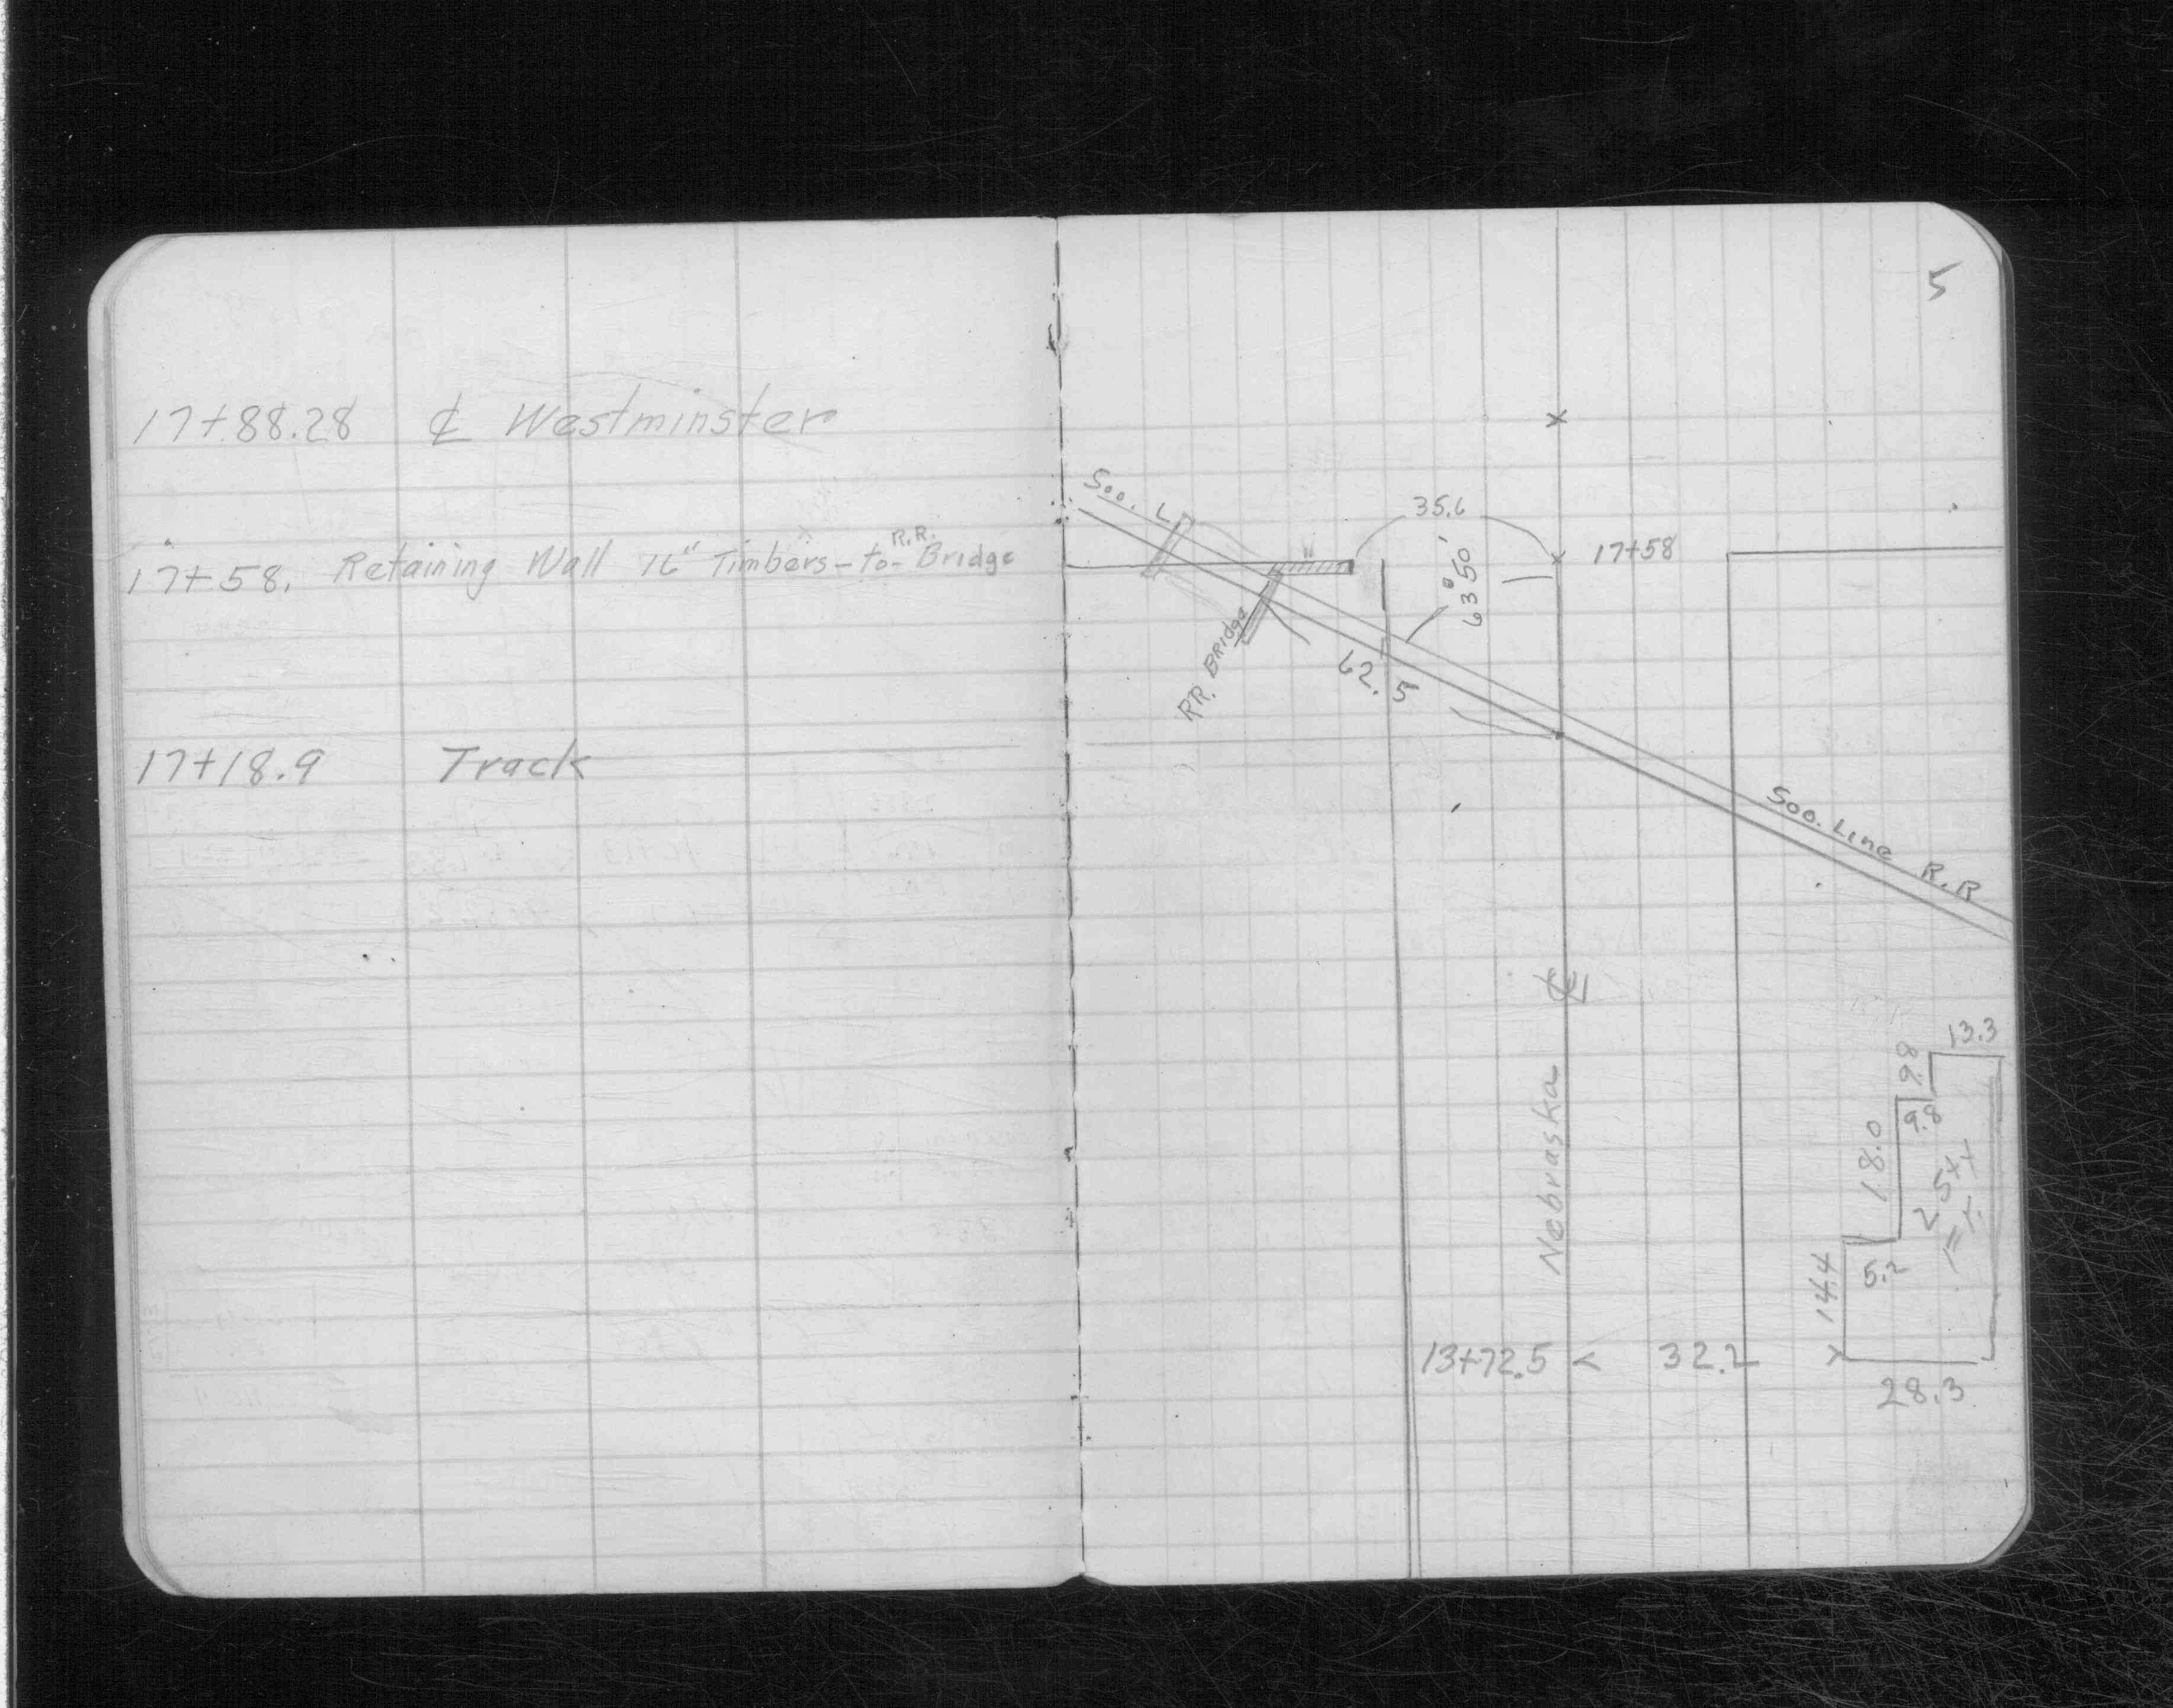 17+88.28 ℄ Westminster
R.R.
17+58. Retaining Wall 16" Timbers-to-Bridge
17+18.9 Track
5
Soo. L
35.6
17+58
63°50'
RR. Bridge
62.5
Soo. Line R.R
℄
Nebraska
13.3
9.8
9.8
18.0
2 St
5.2
14.4
13+72.5 < 32.2
28.3